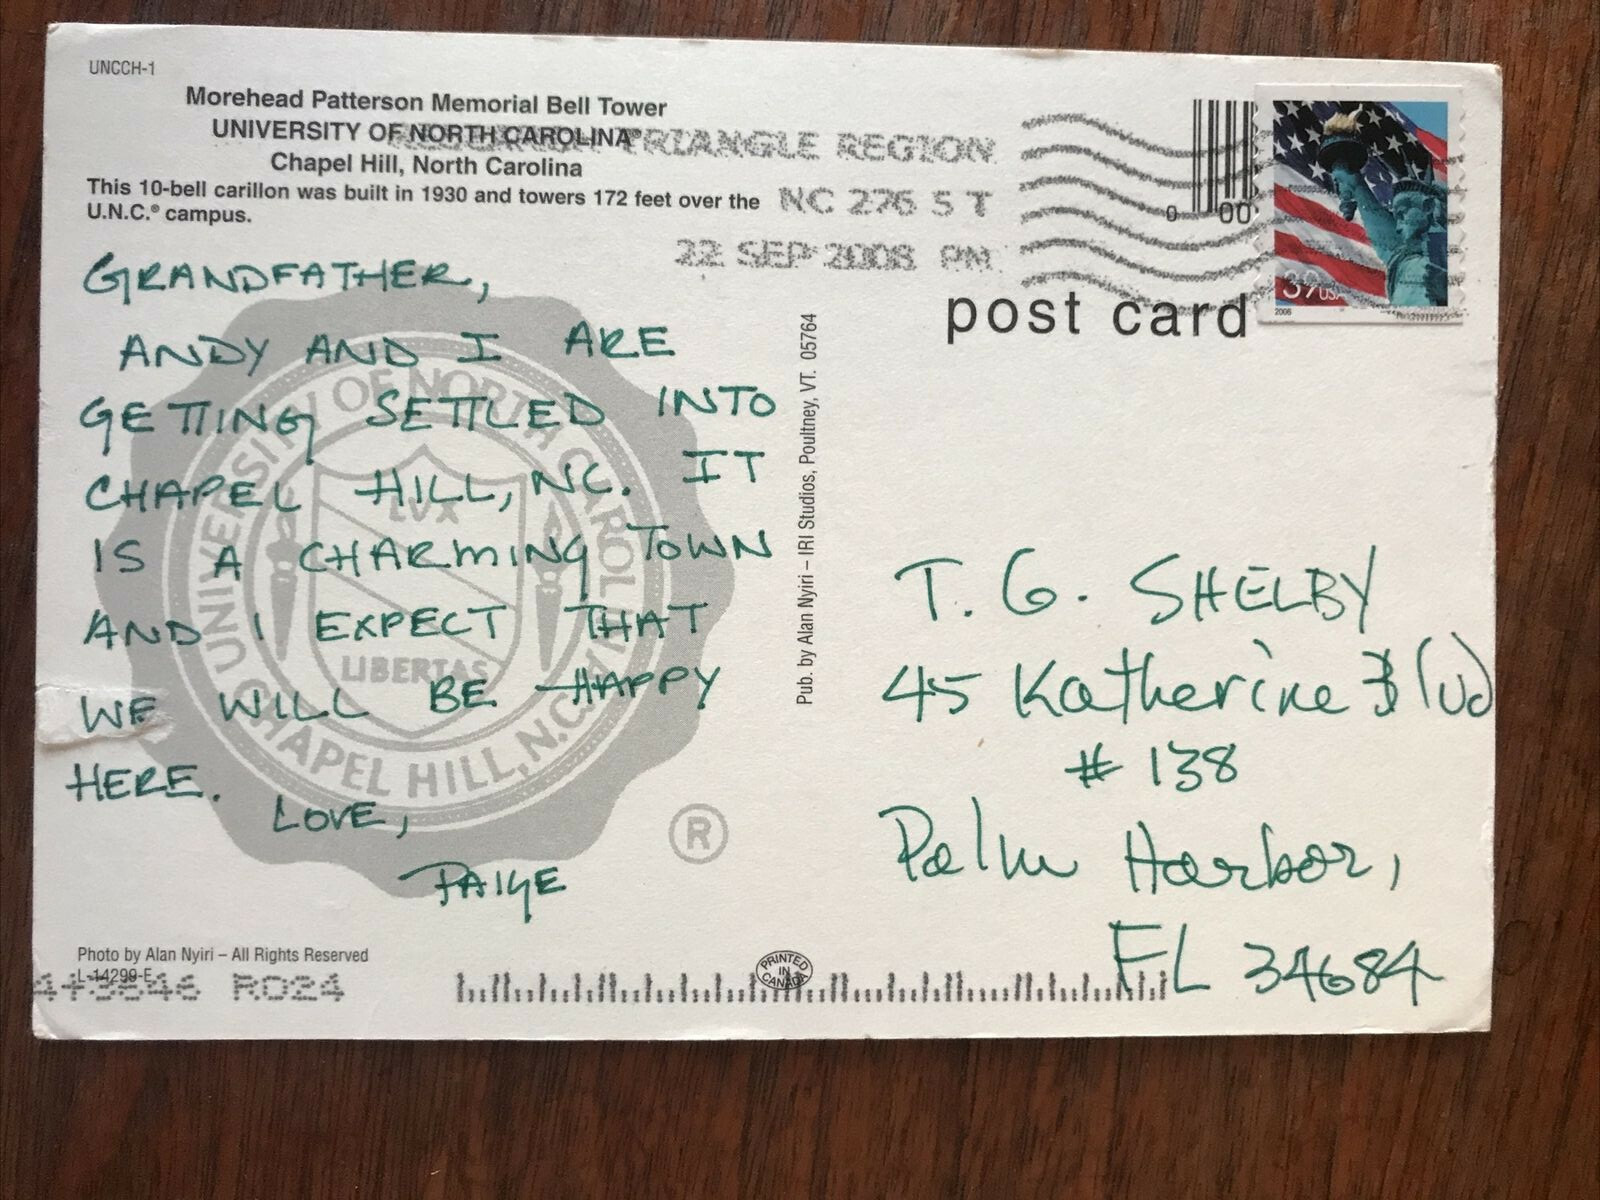 UNCCH-1
Morehead Patterson Memorial Bell Tower
UNIVERSITY OF NORTH CAROLINA®
Chapel Hill, North Carolina
This 10-bell carillon was built in 1930 and towers 172 feet over the
U.N.C.® campus.
TRIANGLE REGION
NC 276 5 T
22 SEP 2008 PM
0 00
39 USA
2006
post card
GRANDFATHER,
ANDY AND I ARE
GETTING SETTLED INTO
CHAPEL HILL, NC. IT
IS A CHARMING TOWN
AND I EXPECT THAT
WE WILL BE HAPPY
HERE.
LOVE,
PAIGE
UNIVERSITY OF NORTH CAROLINA
LUX
LIBERTAS
CHAPEL HILL, N.C.
®
Pub. by Alan Nyiri – IRI Studios, Poultney, VT. 05764
T. G. SHELBY
45 Katherine Blvd
# 138
Palm Harbor,
FL 34684
Photo by Alan Nyiri – All Rights Reserved
L-14299-E
RO24
PRINTED
IN
CANADA